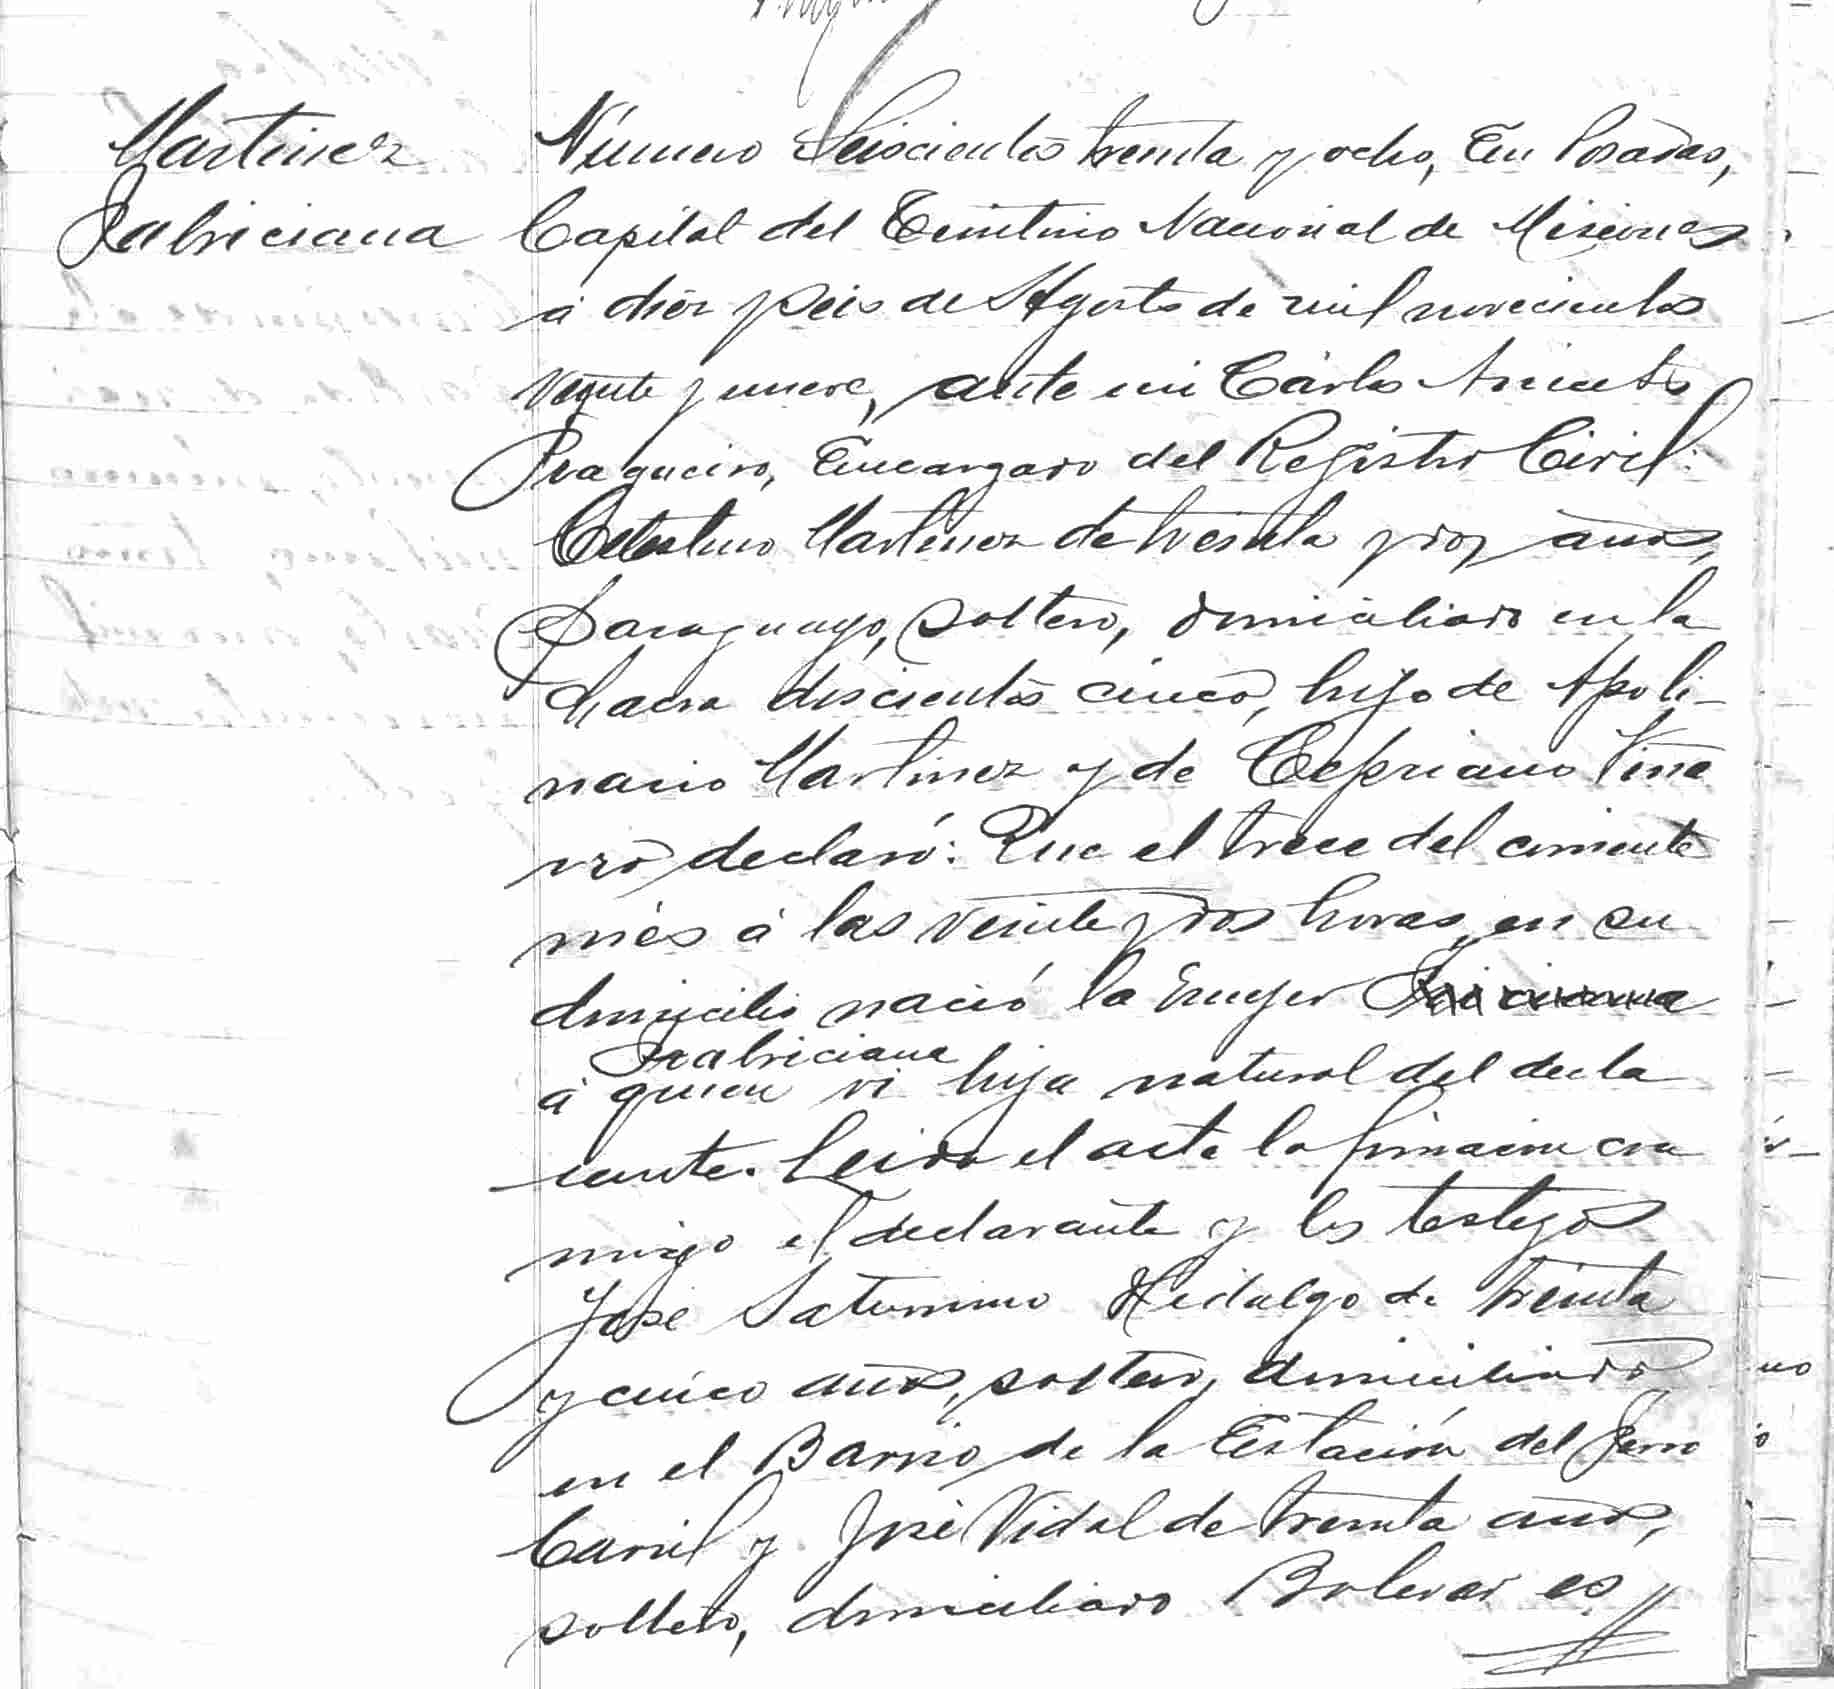 Martinez
Fabriciana
Número Seiscientos treinta y ocho, En Posadas,
Capital del Territorio Nacional de Misiones
á diez y seis de Agosto de mil novecientos
veinte y nueve, ante mi Cárlos Aniceto
Fragueiro, Encargado del Registro Civil:
Celestino Martinez de treinta y dos años,
Paraguayo, soltero, domiciliado en la
chacra doscientos cinco, hijo de Apoli-
nario Martinez y de Cipriano
declaró: Que el trece del corriente
més á las veinte y dos horas, en su
domicilio nació la muger
Fabriciana
á quien vi hija natural del decla
rante. Leida el acta la firmaron con
migo el declarante y los testigos
José Saturnino Hidalgo de treinta
y cinco años, soltero, domiciliado
en el Barrio de la Estación del Ferro
Carril y José Vidal de treinta años,
soltero, domiciliado Bolivar es